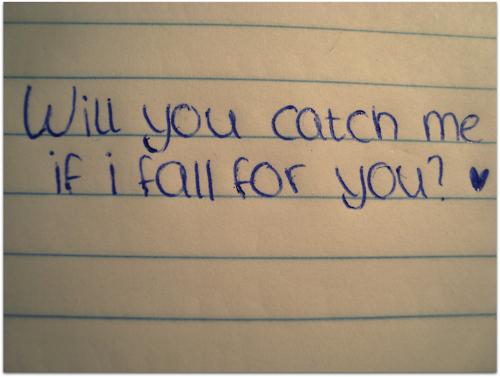 Will you catch me
if i fall for you? ♥